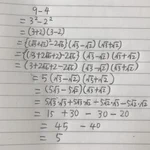 9-4
= 3²-2²
= (3+2)(3-2)
= {(√3+√2)²-2√6} (√3-√2)(√3+√2)
= {(3+2√6+2-2√6} (√3-√2)(√3+√2)
= (3+2√6+2-2√6) (√3-√2)(√3+√2)
= 5 (√3-√2)(√3+√2)
= (5√3-5√2)(√3+√2)
= 5√3√3+5√3√2-5√2√3-5√2√2
= 15 + 30 - 30 - 20
= 45 - 40
= 5